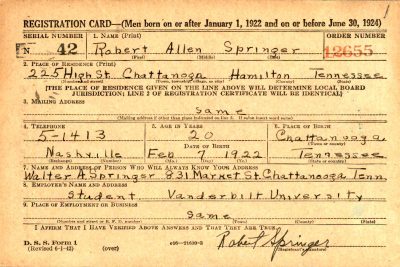 REGISTRATION CARD—(Men born on or after January 1, 1922 and on or before June 30, 1924)
SERIAL NUMBER 1. NAME (Print) ORDER NUMBER
N 42 Robert Allen Springer 12655
(First) (Middle) (Last)
2. PLACE OF RESIDENCE (Print)
225 High St. Chattanooga Hamilton Tennessee
(Number and street) (Town, township, village, or city) (County) (State)
(THE PLACE OF RESIDENCE GIVEN ON THE LINE ABOVE WILL DETERMINE LOCAL BOARD
JURISDICTION; LINE 2 OF REGISTRATION CERTIFICATE WILL BE IDENTICAL)
3. MAILING ADDRESS
Same
(Mailing address if other than place indicated on line 2. If same insert word same)
4. TELEPHONE 5. AGE IN YEARS 6. PLACE OF BIRTH
5-1413 20 Chattanooga
DATE OF BIRTH (Town or county)
Nashville Feb 7 1922 Tennessee
(Exchange) (Number) (Mo.) (Day) (Yr.) (State or country)
7. NAME AND ADDRESS OF PERSON WHO WILL ALWAYS KNOW YOUR ADDRESS
Walter A. Springer 831 Market St. Chattanooga Tenn.
8. EMPLOYER'S NAME AND ADDRESS
Student Vanderbilt University
9. PLACE OF EMPLOYMENT OR BUSINESS
Same
(Number and street or R. F. D. number) (Town) (County) (State)
I AFFIRM THAT I HAVE VERIFIED ABOVE ANSWERS AND THAT THEY ARE TRUE.
D. S. S. Form 1
(Revised 6-1-42) (over) Robert Springer